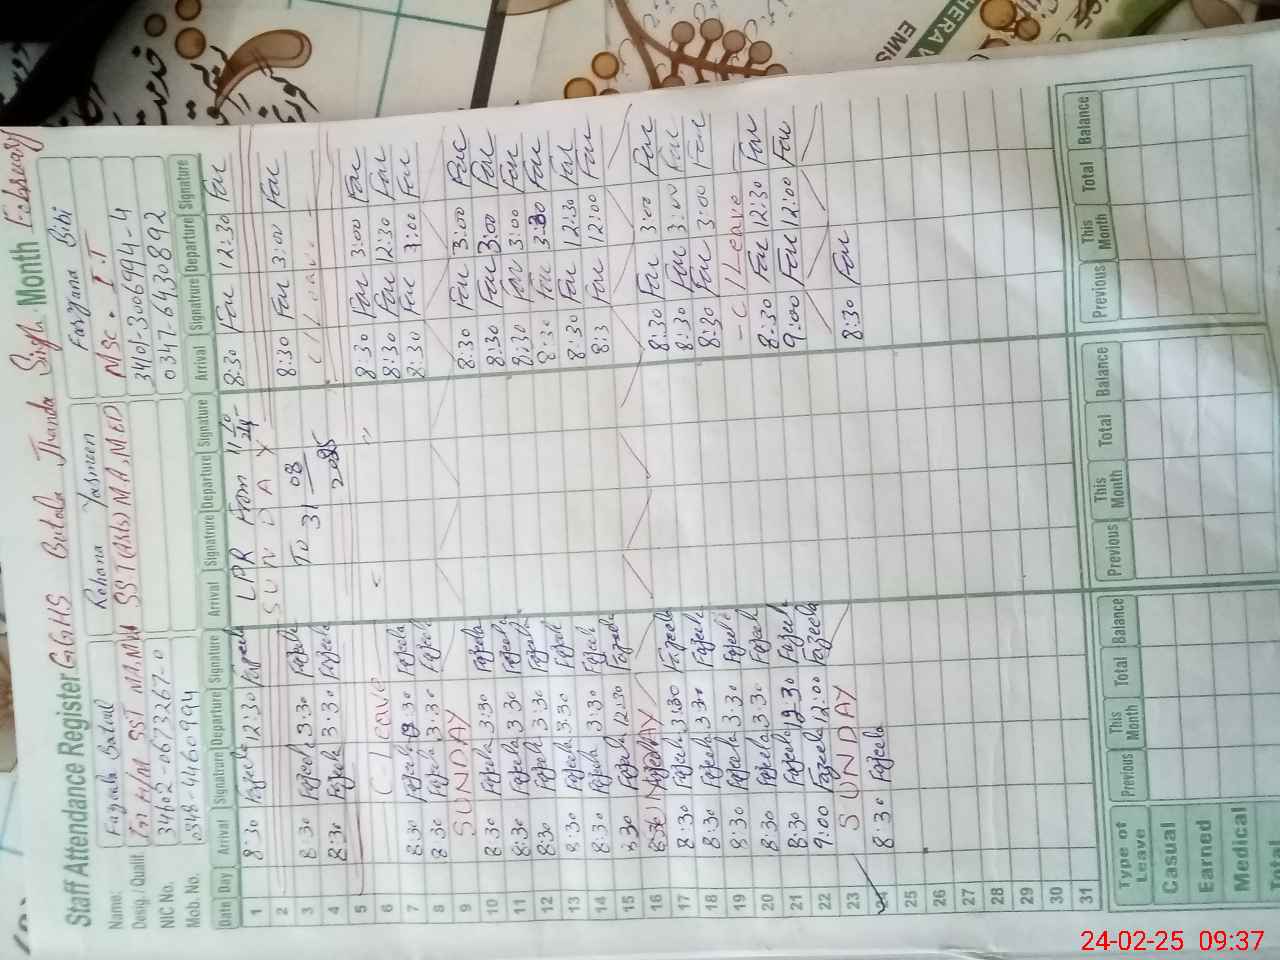 Staff Attendance Register GGHS Butala Jhanda Singh. Month February
Name: Fazeela Batool Rehana Yasmeen Farzana Bibi
Desig./Qualif SST M.A, M.ed SST (Arts) MA, MED MSc. I.T
NIC No. 34102-0673267-0 3401-3006994-4
Mob. No. 0348-4460994 0347-6430892
Date Day Arrival Signature Departure Signature Arrival Signature Departure Signature Arrival Signature Departure Signature
1 8:30 Fazeela 12:30 Fazeela LPR From 11-10-24 8:30 Far 12:30 Far
2 SUNDAY
3 8:30 Fazeela 3:30 Fazeela To 31 08 8:30 Far 3:00 Far
4 8:30 Fazeela 3:30 Fazeela 2025 C/Leave
5
6 C-Leave 8:30 Far 3:00 Far
7 8:30 Fazeela 12:30 Fazeela 8:30 Far 12:30 Far
8 8:30 Fazeela 3:30 Fazeela 8:30 Far 3:00 Far
9 SUNDAY
10 8:30 Fazeela 3:30 Fazeela 8:30 Far 3:00 Far
11 8:30 Fazeela 3:30 Fazeela 8:30 Far 3:00 Far
12 8:30 Fazeela 3:30 Fazeela 8:30 Far 3:00 Far
13 8:30 Fazeela 3:30 Fazeela 8:30 Far 3:30 Far
14 8:30 Fazeela 3:30 Fazeela 8:30 Far 12:30 Far
15 Fazeela 12:30 Fazeela 8:3 Far 12:00 Far
16 SUNDAY
17 8:30 Fazeela 3:30 Fazeela 8:30 Far 3:00 Far
18 8:30 Fazeela 3:30 Fazeela 8:30 Far 3:00 Far
19 8:30 Fazeela 3:30 Fazeela 8:30 Far 3:00 Far
20 8:30 Fazeela 3:30 Fazeela -C/Leave
21 8:30 Fazeela 12:30 Fazeela 8:30 Far 12:30 Far
22 9:00 Fazeela 12:00 Fazeela 9:00 Far 12:00 Far
23 SUNDAY
24 8:30 Fazeela 8:30 Far
25
26
27
28
29
30
31
Type of Leave Previous This Month Total Balance Previous This Month Total Balance Previous This Month Total Balance
Casual
Earned
Medical
Total
HERA
EMIS
24-02-25 09:37